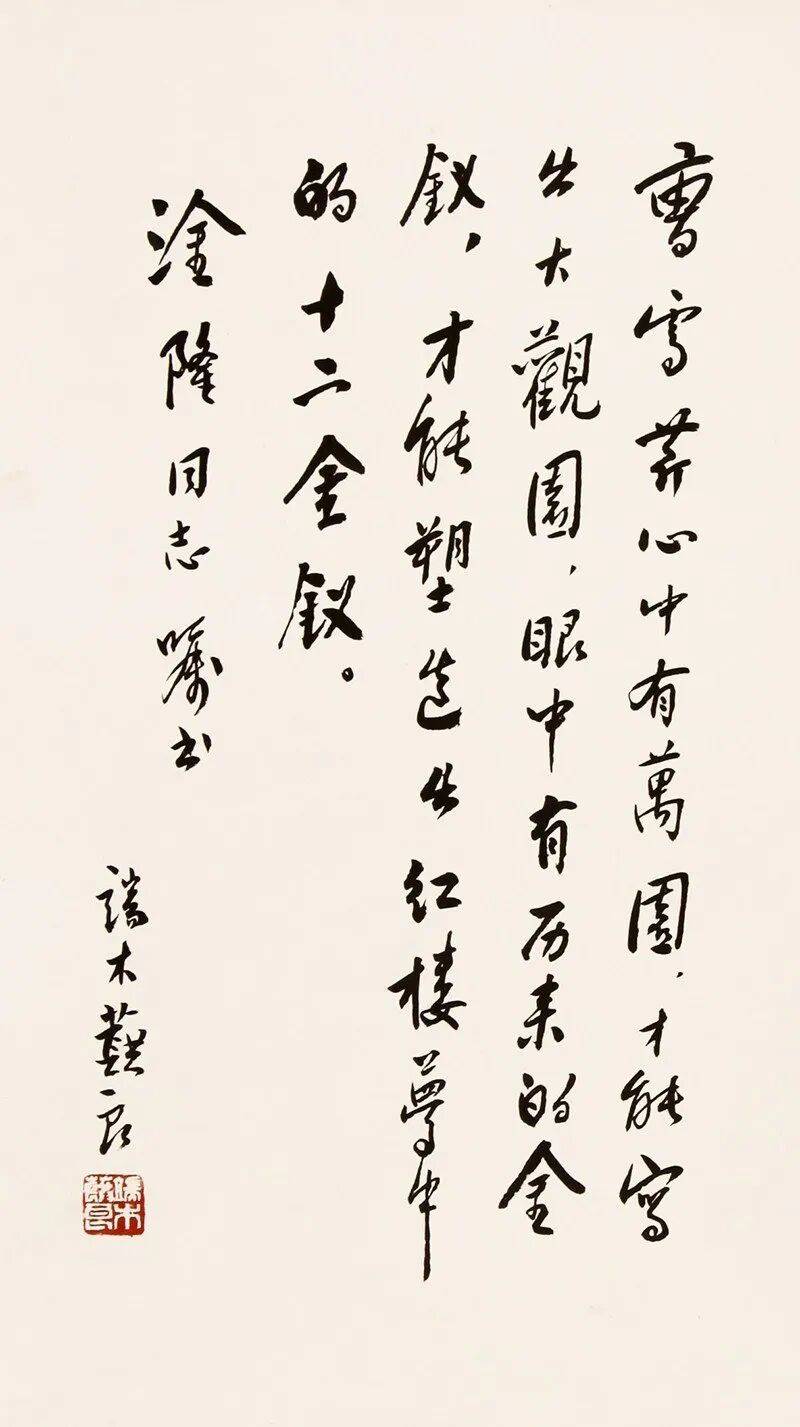 曹雪芹心中有萬園，才能寫
出大觀園，眼中有历来的金
釵，才能塑造出红楼夢中
的十二金釵。
淦隆同志嘱书
端木蕻良
端木蕻良